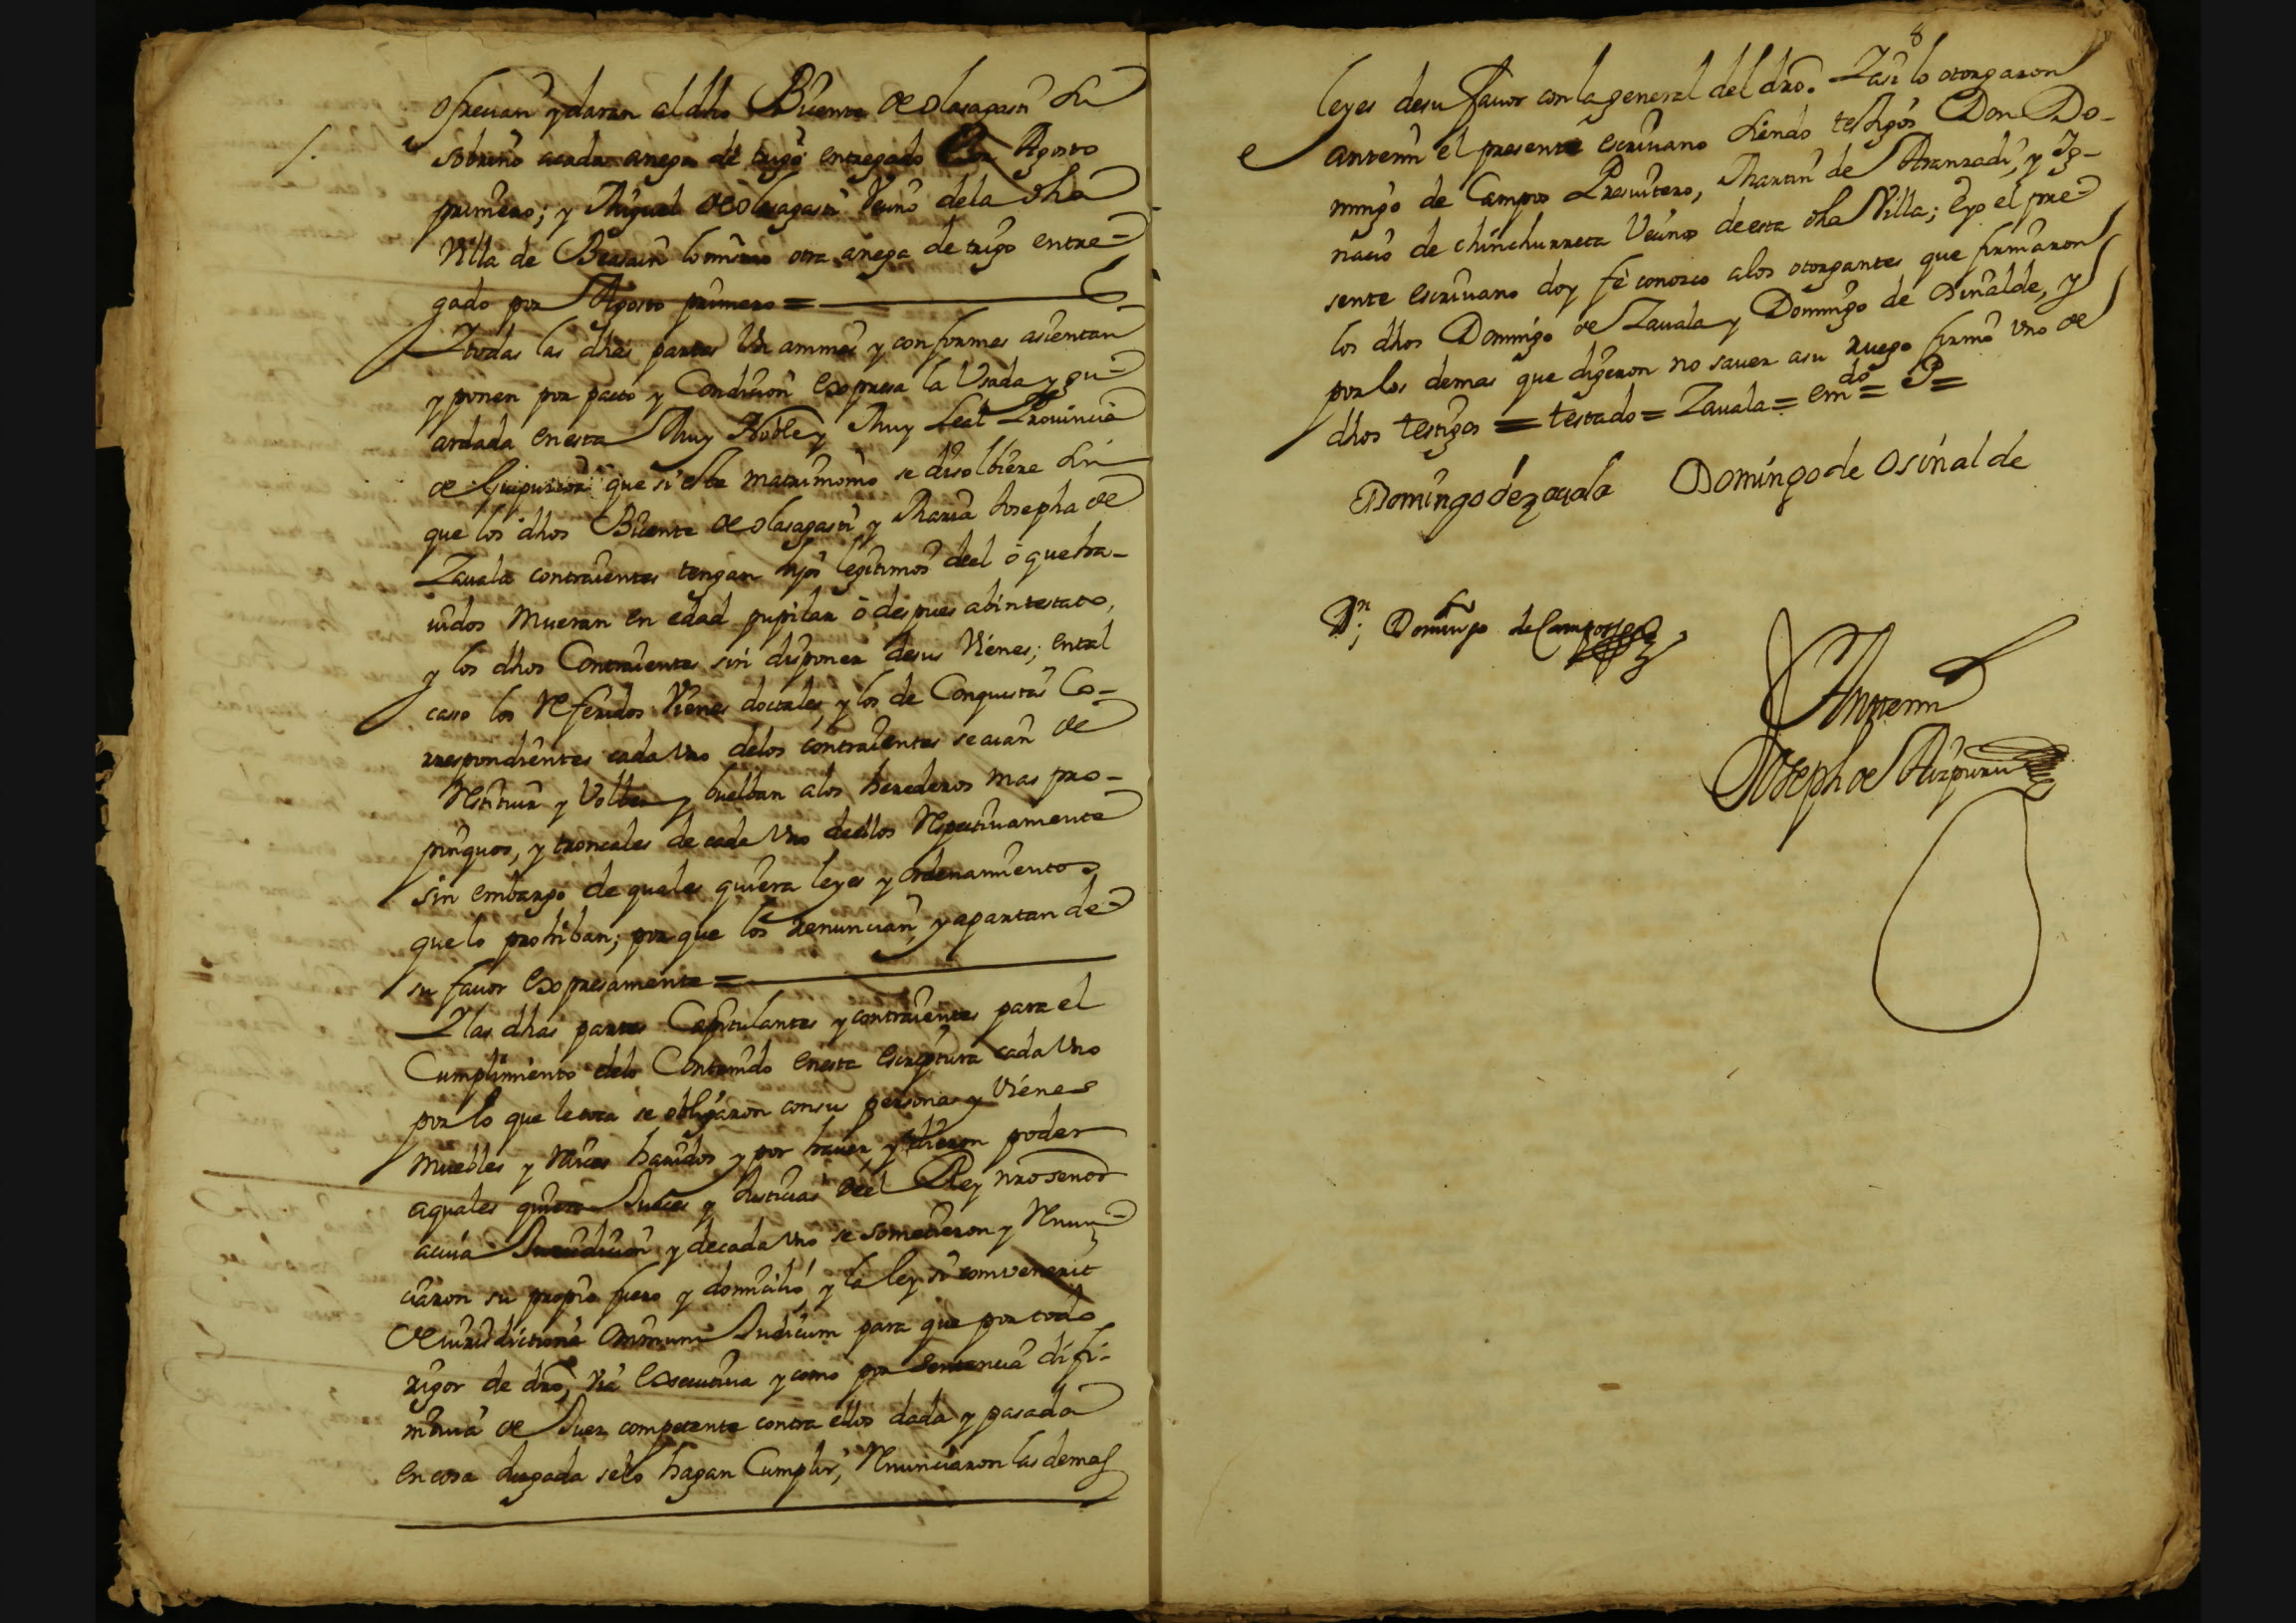 ofrecian y daran al dho Bicente de olasagasti su
sobrino a cada anega de trigo entregado por Agosto
primero; y Miguel de olasagasti Vecino de la dha
Villa de Beasain lo mismo otra anega de trigo entre=
gado por Agosto primero =
Y todas las dhas partes Un ammes y conformes asientan
y ponen por pacto y Condicion expresa la Usada y gu=
ardada en esta Muy Noble y Muy Leal Provincia
de Guipuzcoa que si este matrimonio se disolbiere sin
que los dhos Bicente de olasagasti y Maria Josepha de
Zauala contraientes tengan hijos legitimos de el ó que ha-
uidos mueran en edad pupilar ó despues abintestato,
y los dhos Contraientes sin disponer de sus Vienes; en tal
caso los Referidos Vienes dotales, y los de Conquistas Co-
rrespondientes cada Uno de los contraientes se aian de
Restituir y Volber y buelban a los herederos mas pro-
pinquos, y troncales de cada Uno de ellos Respectiuamente
sin embargo de quales quiera leyes y Ordenamientos
que lo prohiban; por que los renuncian, y apartan de=
su fauor expresamente =
Y las dhas partes Capitulantes y contraientes para el
Cumplimiento de lo Contenido en esta escriptura cada Uno
por lo que le toca se obligaron con sus personas y Vienes
muebles y Raices hauidos y por hauer, y dieron poder
a quales quiera Jueces y Justicias de el Rey nro senor
a cuia Jurisdicion y de cada Uno se sometieron y Renun=
ciaron su propio fuero y domicilio, y la ley si combenerit
de iurisdictione omnium Judicum para que por todo
rigor de dro, via executiua y como por sentencia difi-
nitiua de Juez competente contra ellos dada y pasada
en cosa Juzgada se lo hagan Cumplir; Renunciaron las demas
8
leyes de su fauor con la general del dro. Y asi lo otorgaron
ante mi el presente escriuano siendo testigos Don Do-
mingo de Campos Presuitero, Martin de Aranzadi, y Ig-
nacio de chinchurreta Vecinos de esta dha Villa; e yo el pre=
sente escriuano doy fe conozco a los otorgantes que firmaron
los dhos Domingo de Zauala y Domingo de Osinalde, y
por los demas que digeron no sauer a su ruego firmó Uno de
dhos testigos = testado = Zauala = em.do = P =
Domingo de zauala Domingo de Osinalde
Dn. Domingo de Campos
Ante mi
Joseph de Aizpuru